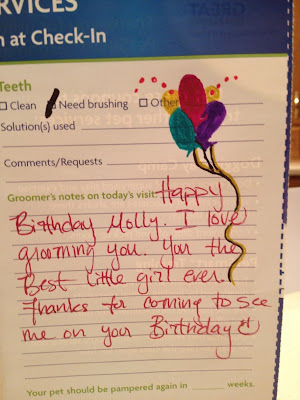 RVICES
n at Check-In
Teeth
☐ Clean ☐ Need brushing ☐ Other
Solution(s) used
Comments/Requests
Groomer's notes on today's visit: Happy
Birthday Molly. I love
grooming you. You the
Best little girl ever.
Thanks for coming to see
me on your Birthday
Your pet should be pampered again in ______ weeks.